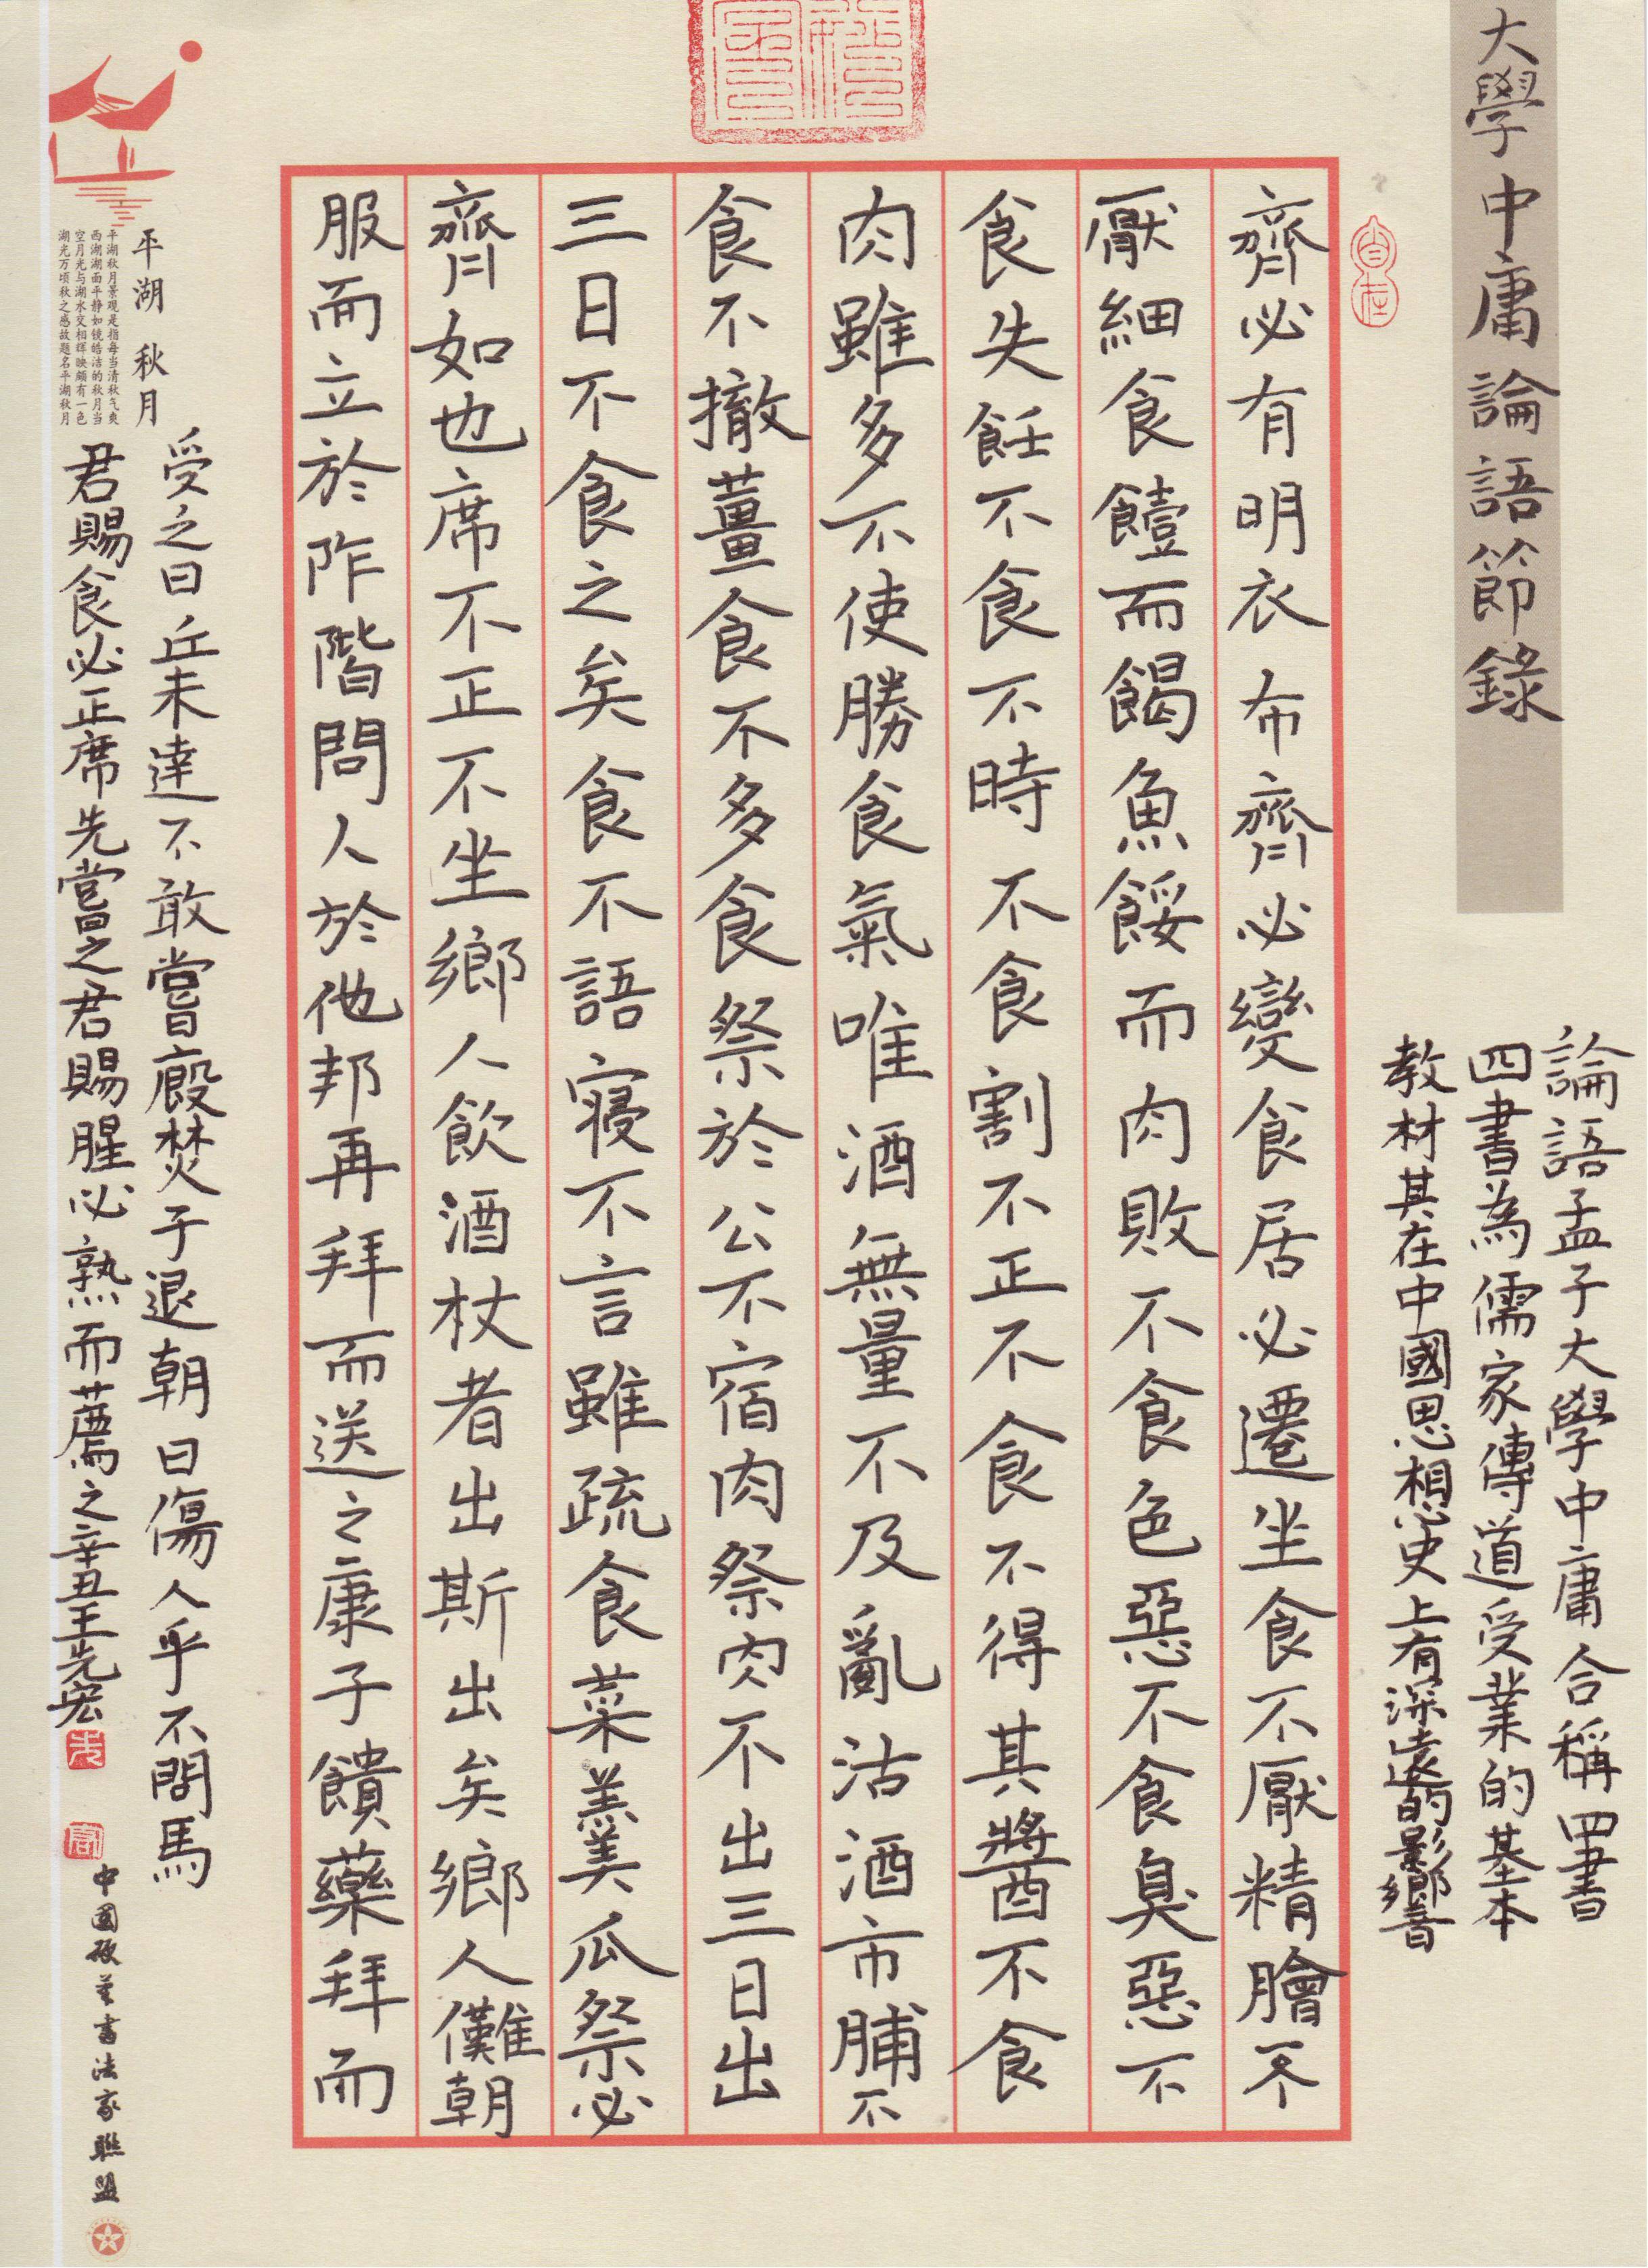 大學中庸論語節錄
論語孟子大學中庸合稱四書
四書為儒家傳道受業的基本
教材其在中國思想史上有深遠的影響
自在
齊必有明衣布齊必變食居必遷坐食不厭精膾不
厭細食饐而餲魚餒而肉敗不食色惡不食臭惡不
食失飪不食不時不食割不正不食不得其醬不食
肉雖多不使勝食氣唯酒無量不及亂沽酒市脯不
食不撤薑食不多食祭於公不宿肉祭肉不出三日出
三日不食之矣食不語寢不言雖疏食菜羹瓜祭必
齊如也席不正不坐鄉人飲酒杖者出斯出矣鄉人儺朝
服而立於阼階問人於他邦再拜而送之康子饋藥拜而
受之曰丘未達不敢嘗廄焚子退朝曰傷人乎不問馬
君賜食必正席先嘗之君賜腥必熟而薦之辛丑王先宏
平湖 秋月
平湖秋月景观是指每当清秋气爽
西湖湖面平静如镜皓洁的秋月当
空月光与湖水交相辉映颇有一色
湖光万顷秋之感故题名平湖秋月
中國硬筆書法家聯盟